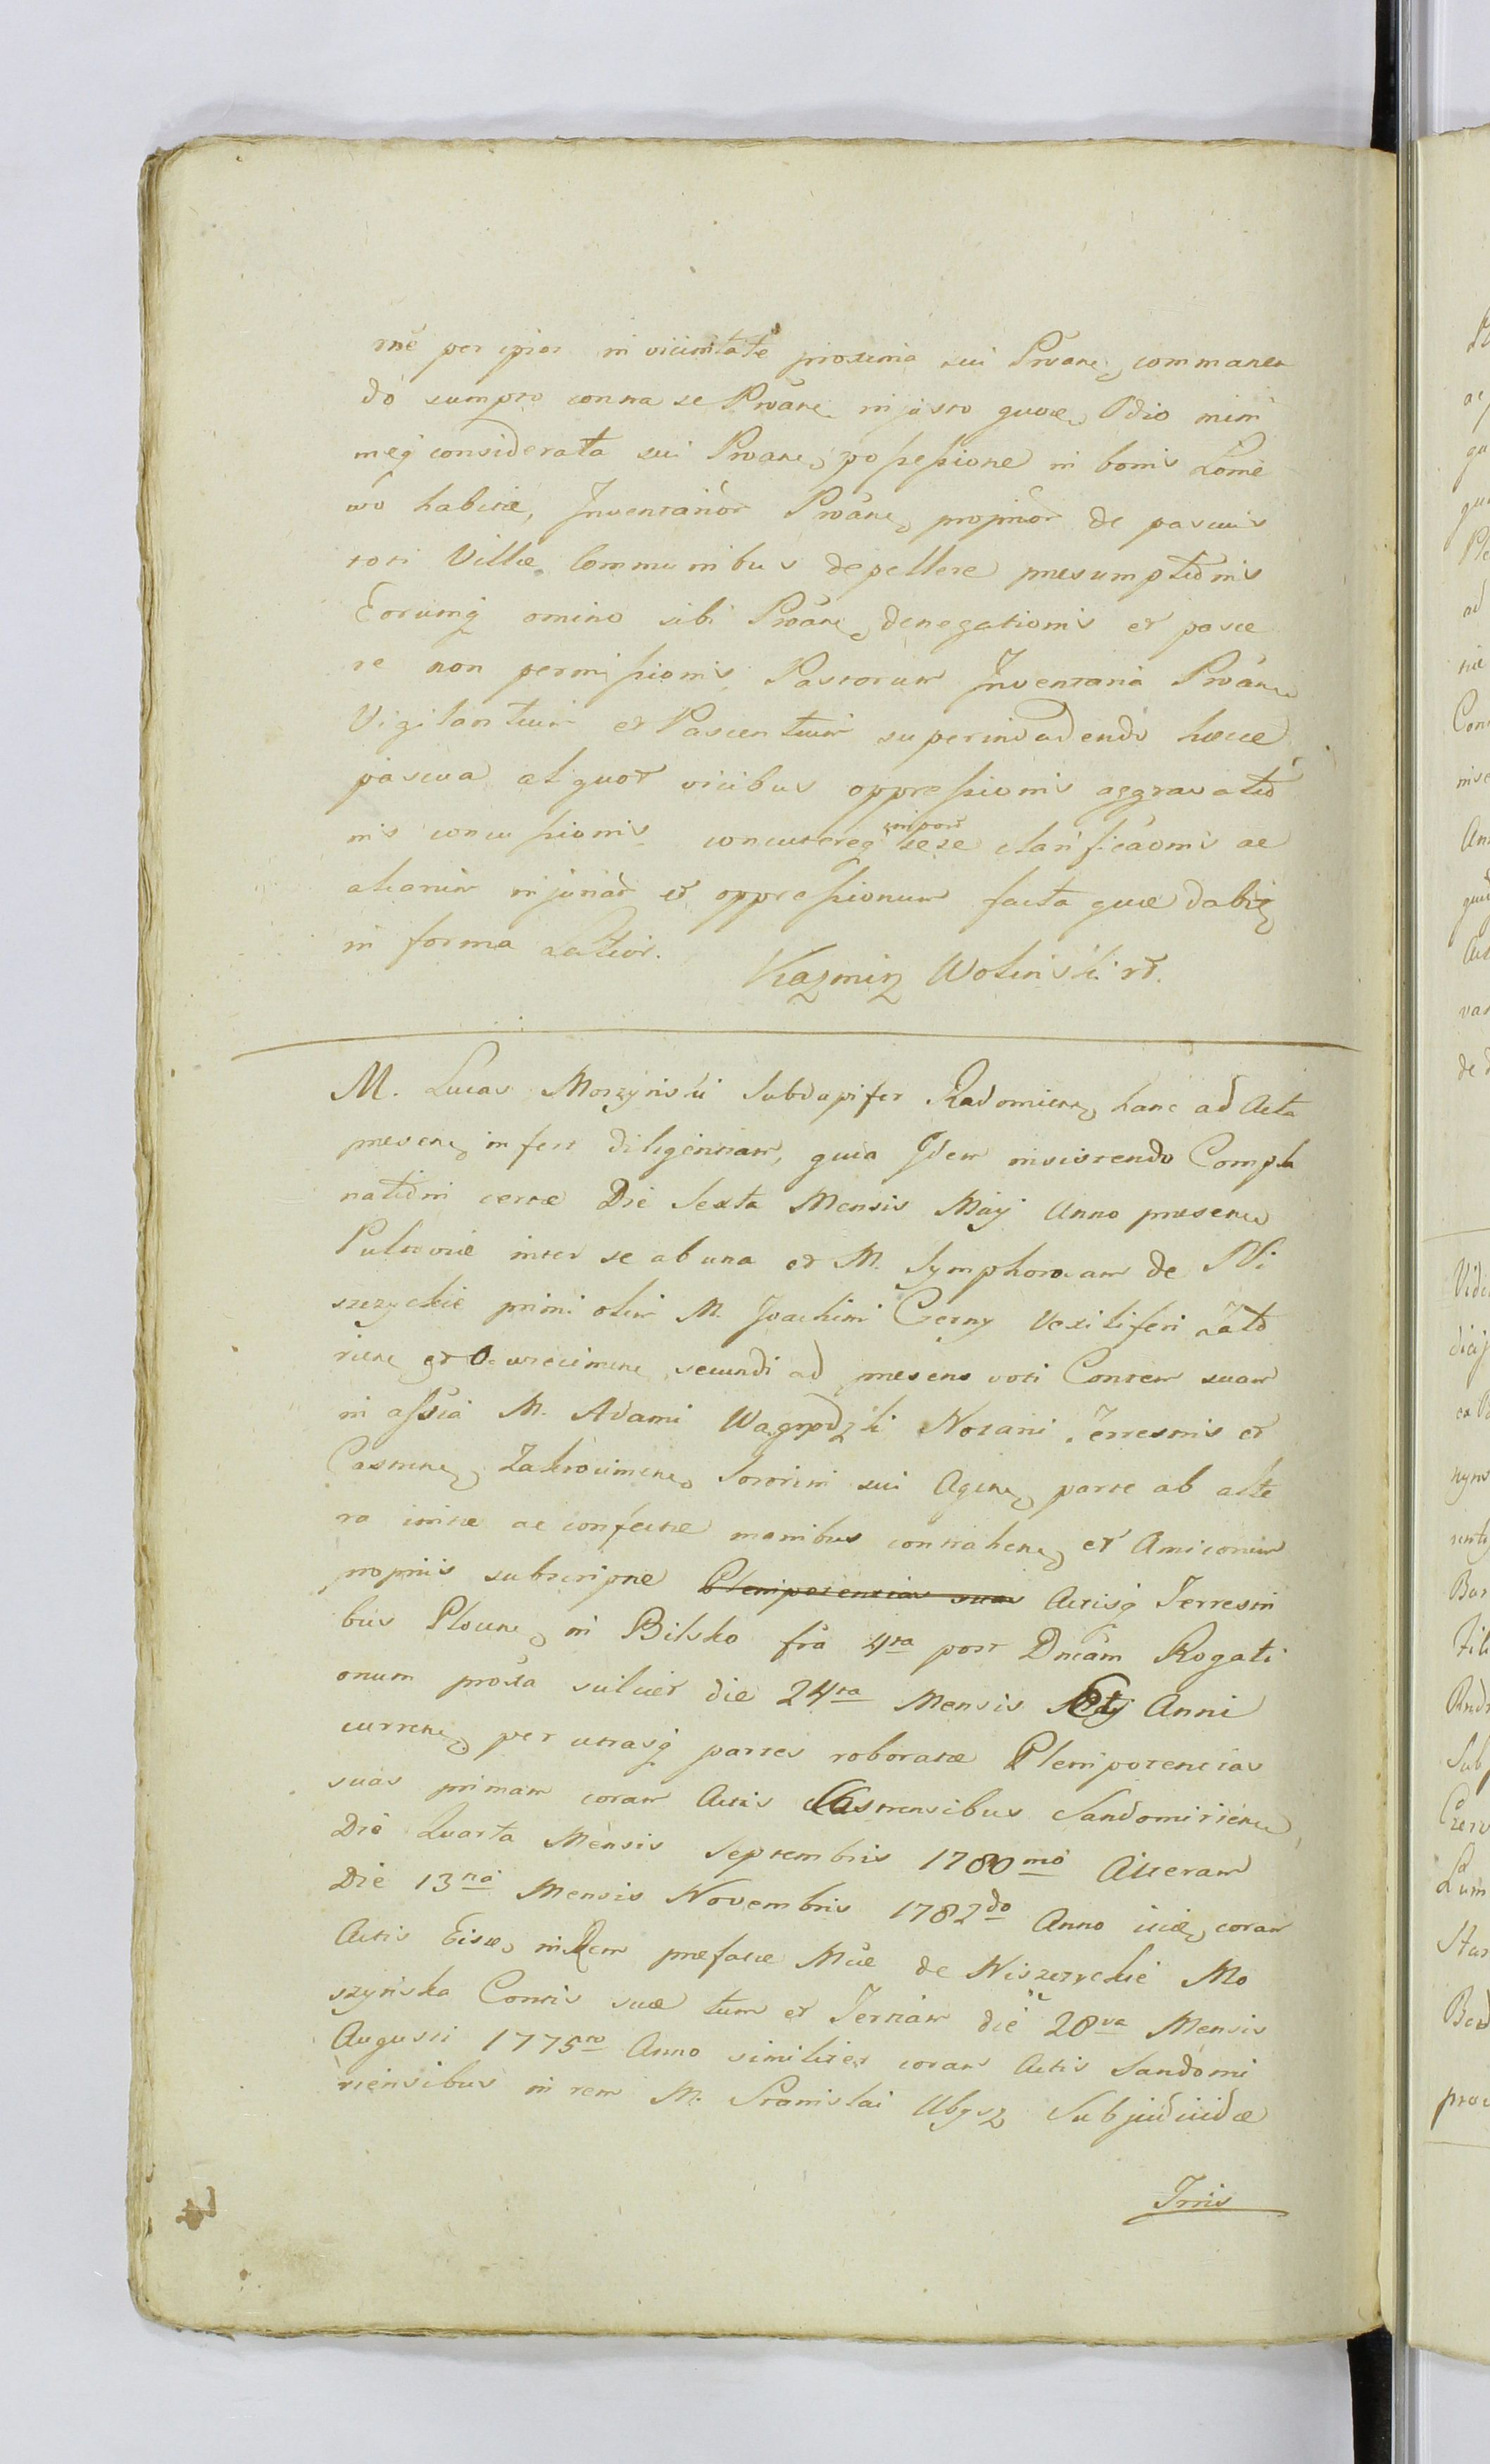 rnẽ per ipsos in vicinitate proxima sui Proãne commanen
do sumpto contra se Proãne injusto quoe Odio mini
meq considerata sui Proane possessione in bonis Lomie
wo habitæ, Inventariõr Proãne propriõr de pascuis
toti Villæ Communibus depellere præsumptiõnis
Eorumq omino sibi Proãne denegationis et pasce
re non permissionis Pastorum Inventaria Proãne
Vigilantium et Pascentium superinvadendo hæcce
pascua aliquot vicibus oppressionis aggravatiõ
nis concussionis concutereq sese clarificãonis ac
aliarum injuriãr et oppressionum facta quæ dabit
in forma Latior.
Kazmirz Wolinski rõ.
M. Lucas Morzyński Subdapifer Radomiens hanc ad Acta
præsene infert diligentiam, quia Idem insistendo Compla
natiõni certæ Die Sexta Mensis Maij Anno præsene
Pultoviæ inter se ab una et M. Symphoroeam de Ni
szczyckie primi olim M. Joachimi Czerny Vexiliferi Zato
riene et Oswiecimene secundi ad præsens voti Contem suam
in assiã M. Adami Wagrodzki Notarii Terrestris et
Castrene Zakrocimene Sororini sui Agene parte ab alte
ra initæ ac confectæ manibus contrahene et Amicorum
propriis subscriptæ Plenipotencias suas Actisq Terrestri
bus Plocene in Bilsko friã 4ta post Dncãm Rogati
onum proxa scilicet die 24ta Mensis Anni
currene per utrasq partes roboratæ Plenipotencias
suas primam coram Actis Castrensibus Sandomiriene
Die Quarta Mensis Septembris 1780mo Alteram
Die 13na Mensis Novembris 1782do Anno coram
Actis Eisde in Rem præfatæ Mcæ de Niszczyckie Mo
szyńska Contis suæ tum et Tertiam die 28va Mensis
Augusti 1775to Anno similiter coram Actis Sandomi
riensibus in rem M. Stanislai Ubysz Subjudicidæ
Trris